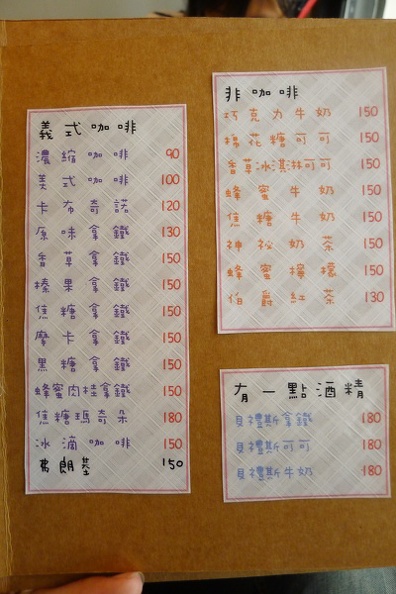 義式咖啡
濃縮咖啡 90
美式咖啡 100
卡布奇諾 120
原味拿鐵 130
香草拿鐵 150
榛果拿鐵 150
焦糖拿鐵 150
摩卡拿鐵 150
黑糖拿鐵 150
蜂蜜肉桂拿鐵 150
焦糖瑪奇朵 180
冰滴咖啡 150
弗朗基 150
非咖啡
巧克力牛奶 150
棉花糖可可 150
香草冰淇淋可可 150
蜂蜜牛奶 150
焦糖牛奶 150
神祕奶茶 150
蜂蜜檸檬 150
伯爵紅茶 130
有一點酒精
貝禮斯拿鐵 180
貝禮斯可可 180
貝禮斯牛奶 180